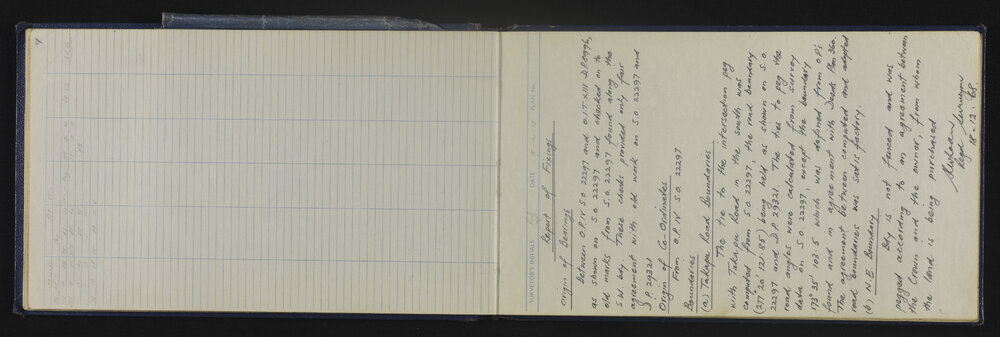 SURVEYOR'S INITIALS DATE PLAN No.
Report of Fixings
Origin of Bearings
Between O.P. IV S.O. 22297 and O.I.T. XIII D.P. 8996,
as shown on S.O. 22297 and checked on to
old marks from S.O. 22297 found along the
S.W. bdy. These checks provided only fair
agreement with old work on S.O. 22297 and
D.P. 29321
Origin of Co-Ordinates
From O.P. IV S.O. 22297
Boundaries
(a) Takapu Road Boundaries
The tie to the intersection peg
with Takapu Road in the south was
computed from S.O. 22297, the road boundary
(277° 20' 121·85) being held as shown on S.O.
22297 and D.P. 29321. The ties to peg the
road angles were calculated from survey
data on S.O. 22297, except the boundary
173° 35' 103·5 which was defined from O.P.'s
found and in agreement with Deeds Plan 360.
The agreement between computed and adopted
road boundaries was satisfactory.
(b) N.E. Boundary
Bdy is not fenced and was
pegged according to an agreement between
the Crown and the owner, from whom
the land is being purchased
Regd Surveyor
18-12-68